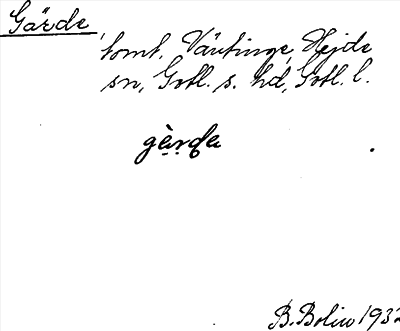 Gärde,
tomt, Väntinge, Hejde
sn, Gotl. s. hd, Gotl. l.
gä̀rda
B. Bolin 1932